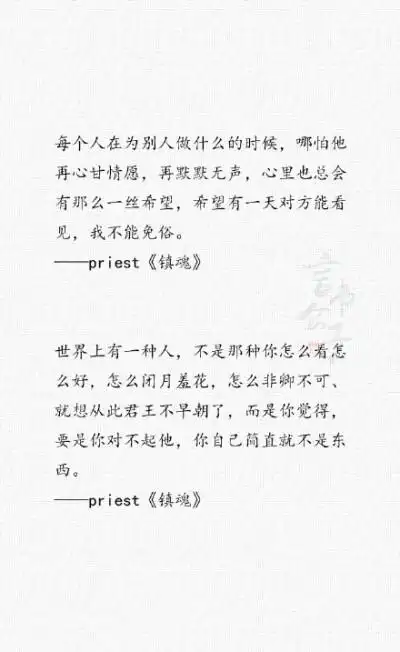 每个人在为别人做什么的时候，哪怕他
再心甘情愿，再默默无声，心里也总会
有那么一丝希望，希望有一天对方能看
见，我不能免俗。
——priest《镇魂》
世界上有一种人，不是那种你怎么看怎
么好，怎么闭月羞花，怎么非卿不可、
就想从此君王不早朝了，而是你觉得，
要是你对不起他，你自己简直就不是东
西。
——priest《镇魂》